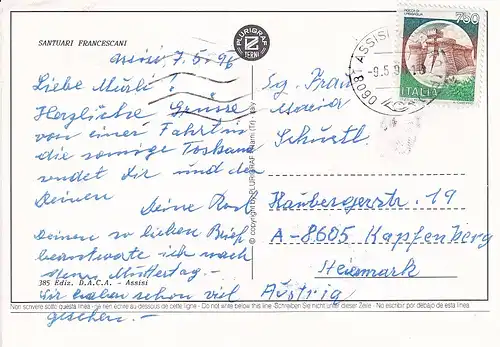 SANTUARI FRANCESCANI
PLURIGRAF
TERNI
ROCCA DI URBISAGLIA
750
ITALIA
06081 ASSISI
-9.5.9
Assisi 7.5.96
Liebe Mutti!
Herzliche Grüsse
von einer Fahrt in
die sonnige Toskana
sendet Dir und den
Deinen
Deine
Deinen so lieben Brief
beantworte ich nach
dem Muttertag. -
Wir haben schon viel
gesehen. -
Sg. Frau
Maria
Haubergerstr. 19
A-8605 Kapfenberg
Steiermark
Austria
© copyright by PLURIGRAF Narni (Tr) - Italy
385 Ediz. D.A.C.A. - Assisi
Non scrivere sotto questa linea - ne rien écrire au dessous de cette ligne - Do not write below this line - Schreiben Sie nicht unter dieser Zeile - No escribir por debajo de esta linea